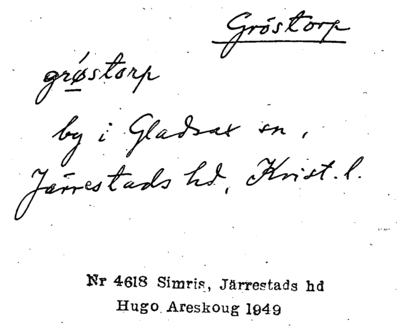 Gröstorp
grøstorp
by i Gladsax sn,
Järrestads hd, Krist. l.
Nr 4618 Simris, Järrestads hd
Hugo Areskoug 1949